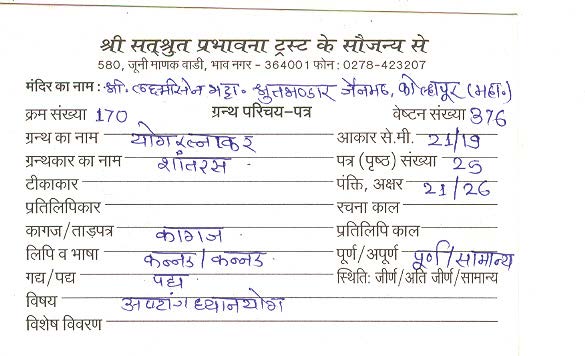 श्री सत्श्रुत प्रभावना ट्रस्ट के सौजन्य से
580, जूनी माणक वाडी, भाव नगर - 364001 फोन : 0278-423207
मंदिर का नाम : श्री. लक्ष्मीसेन भट्टा. श्रुतभण्डार जैनमठ, कोल्हापूर (महा.)
क्रम संख्या 170 ग्रन्थ परिचय-पत्र वेष्टन संख्या 376
ग्रन्थ का नाम योगरत्नाकर आकार से.मी. 21/19
ग्रन्थकार का नाम शांतरस पत्र (पृष्ठ) संख्या 25
टीकाकार पंक्ति, अक्षर 21/26
प्रतिलिपिकार रचना काल
कागज/ताड़पत्र कागज प्रतिलिपि काल
लिपि व भाषा कन्नड/कन्नड पूर्ण/अपूर्ण पूर्ण/सामान्य
गद्य/पद्य पद्य स्थिति: जीर्ण/अति जीर्ण/सामान्य
विषय अष्टांगध्यानयोग
विशेष विवरण